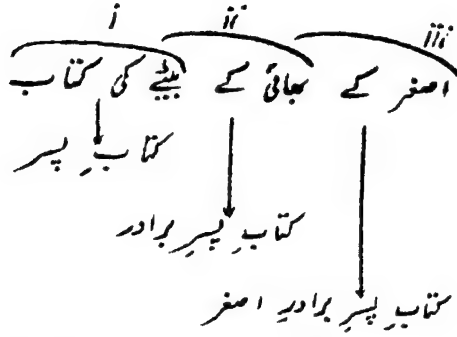 iii ii i
اصغر کے بھائی کے بیٹے کی کتاب
کتابِ پسر
کتابِ پسرِ برادر
کتابِ پسرِ برادرِ اصغر